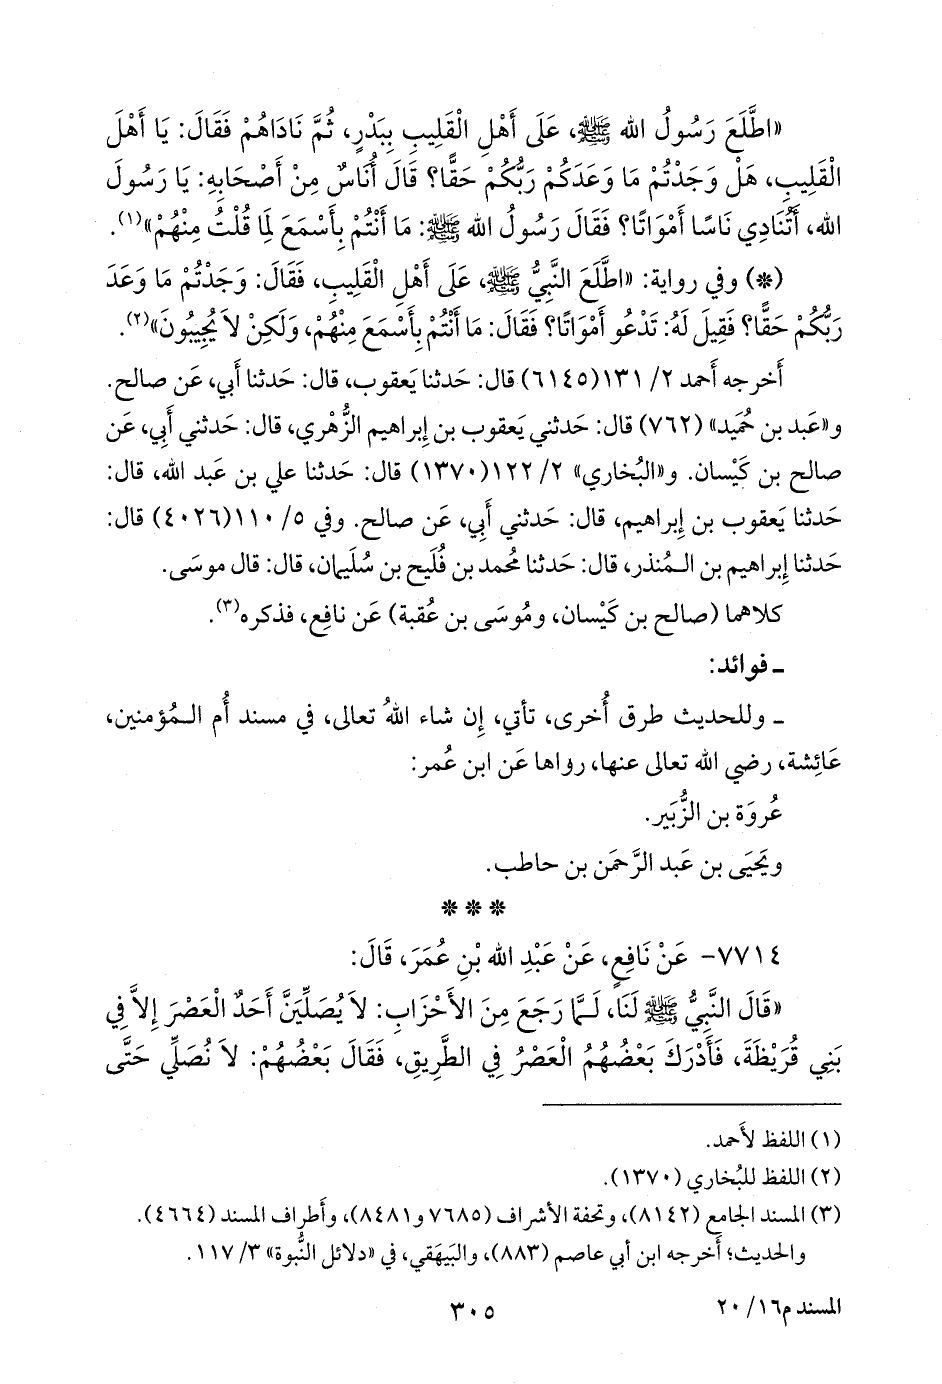 «اطَّلَعَ رَسُولُ الله ﷺ، عَلَى أَهْلِ الْقَلِيبِ بِبَدْرٍ، ثُمَّ نَادَاهُمْ فَقَالَ: يَا أَهْلَ
الْقَلِيبِ، هَلْ وَجَدْتُمْ مَا وَعَدَكُمْ رَبُّكُمْ حَقًّا؟ قَالَ أُنَاسٌ مِنْ أَصْحَابِهِ: يَا رَسُولَ
الله، أَتُنَادِي نَاسًا أَمْوَاتًا؟ فَقَالَ رَسُولُ الله ﷺ: مَا أَنْتُمْ بِأَسْمَعَ لِمَا قُلْتُ مِنْهُمْ»(١).
(*) وفي رواية: «اطَّلَعَ النَّبِيُّ ﷺ، عَلَى أَهْلِ الْقَلِيبِ، فَقَالَ: وَجَدْتُمْ مَا وَعَدَ
رَبُّكُمْ حَقًّا؟ فَقِيلَ لَهُ: تَدْعُو أَمْوَاتًا؟ فَقَالَ: مَا أَنْتُمْ بِأَسْمَعَ مِنْهُمْ، وَلَكِنْ لاَ يُجِيبُونَ»(٢).
أخرجه أحمد ٢/ ١٣١(٦١٤٥) قال: حَدثنا يَعقوب، قال: حَدثنا أبي، عَن صالح.
و«عَبد بن حُميد» (٧٦٢) قال: حَدثني يَعقوب بن إبراهيم الزُّهري، قال: حَدثني أبي، عَن
صالح بن كَيْسان. و«البُخاري» ٢/ ١٢٢(١٣٧٠) قال: حَدثنا علي بن عَبد الله، قال:
حَدثنا يَعقوب بن إبراهيم، قال: حَدثني أبي، عَن صالح. وفي ٥/ ١١٠(٤٠٢٦) قال:
حَدثنا إبراهيم بن المُنذر، قال: حَدثنا مُحمد بن فُلَيح بن سُليمان، قال: قال موسَى.
كلاهما (صالح بن كَيْسان، ومُوسَى بن عُقبة) عَن نافِع، فذكره(٣).
ـ فوائد:
ـ وللحديث طرق أُخرى، تأتي، إن شاء اللهُ تعالى، في مسند أُم المُؤمنين،
عَائِشة، رضي الله تعالى عنها، رواها عَن ابن عُمر:
عُروَة بن الزُّبَير.
ويَحيَى بن عَبد الرَّحمَن بن حاطب.
* * *
٧٧١٤- عَنْ نَافِعٍ، عَنْ عَبْدِ الله بْنِ عُمَرَ، قَالَ:
«قَالَ النَّبِيُّ ﷺ لَنَا، لَمَّا رَجَعَ مِنَ الأَحْزَابِ: لاَ يُصَلِّيَنَّ أَحَدٌ الْعَصْرَ إِلاَّ فِي
بَنِي قُرَيْظَةَ، فَأَدْرَكَ بَعْضُهُمُ الْعَصْرُ فِي الطَّرِيقِ، فَقَالَ بَعْضُهُمْ: لاَ نُصَلِّي حَتَّى
(١) اللفظ لأحمد.
(٢) اللفظ للبُخاري (١٣٧٠).
(٣) المسند الجامع (٨١٤٢)، وتحفة الأشراف (٧٦٨٥ و٨٤٨١)، وأطراف المسند (٤٦٦٤).
والحديث؛ أخرجه ابن أبي عاصم (٨٨٣)، والبَيهَقي، في «دلائل النُّبوة» ٣/ ١١٧.
المسند م١٦/ ٢٠
٣٠٥